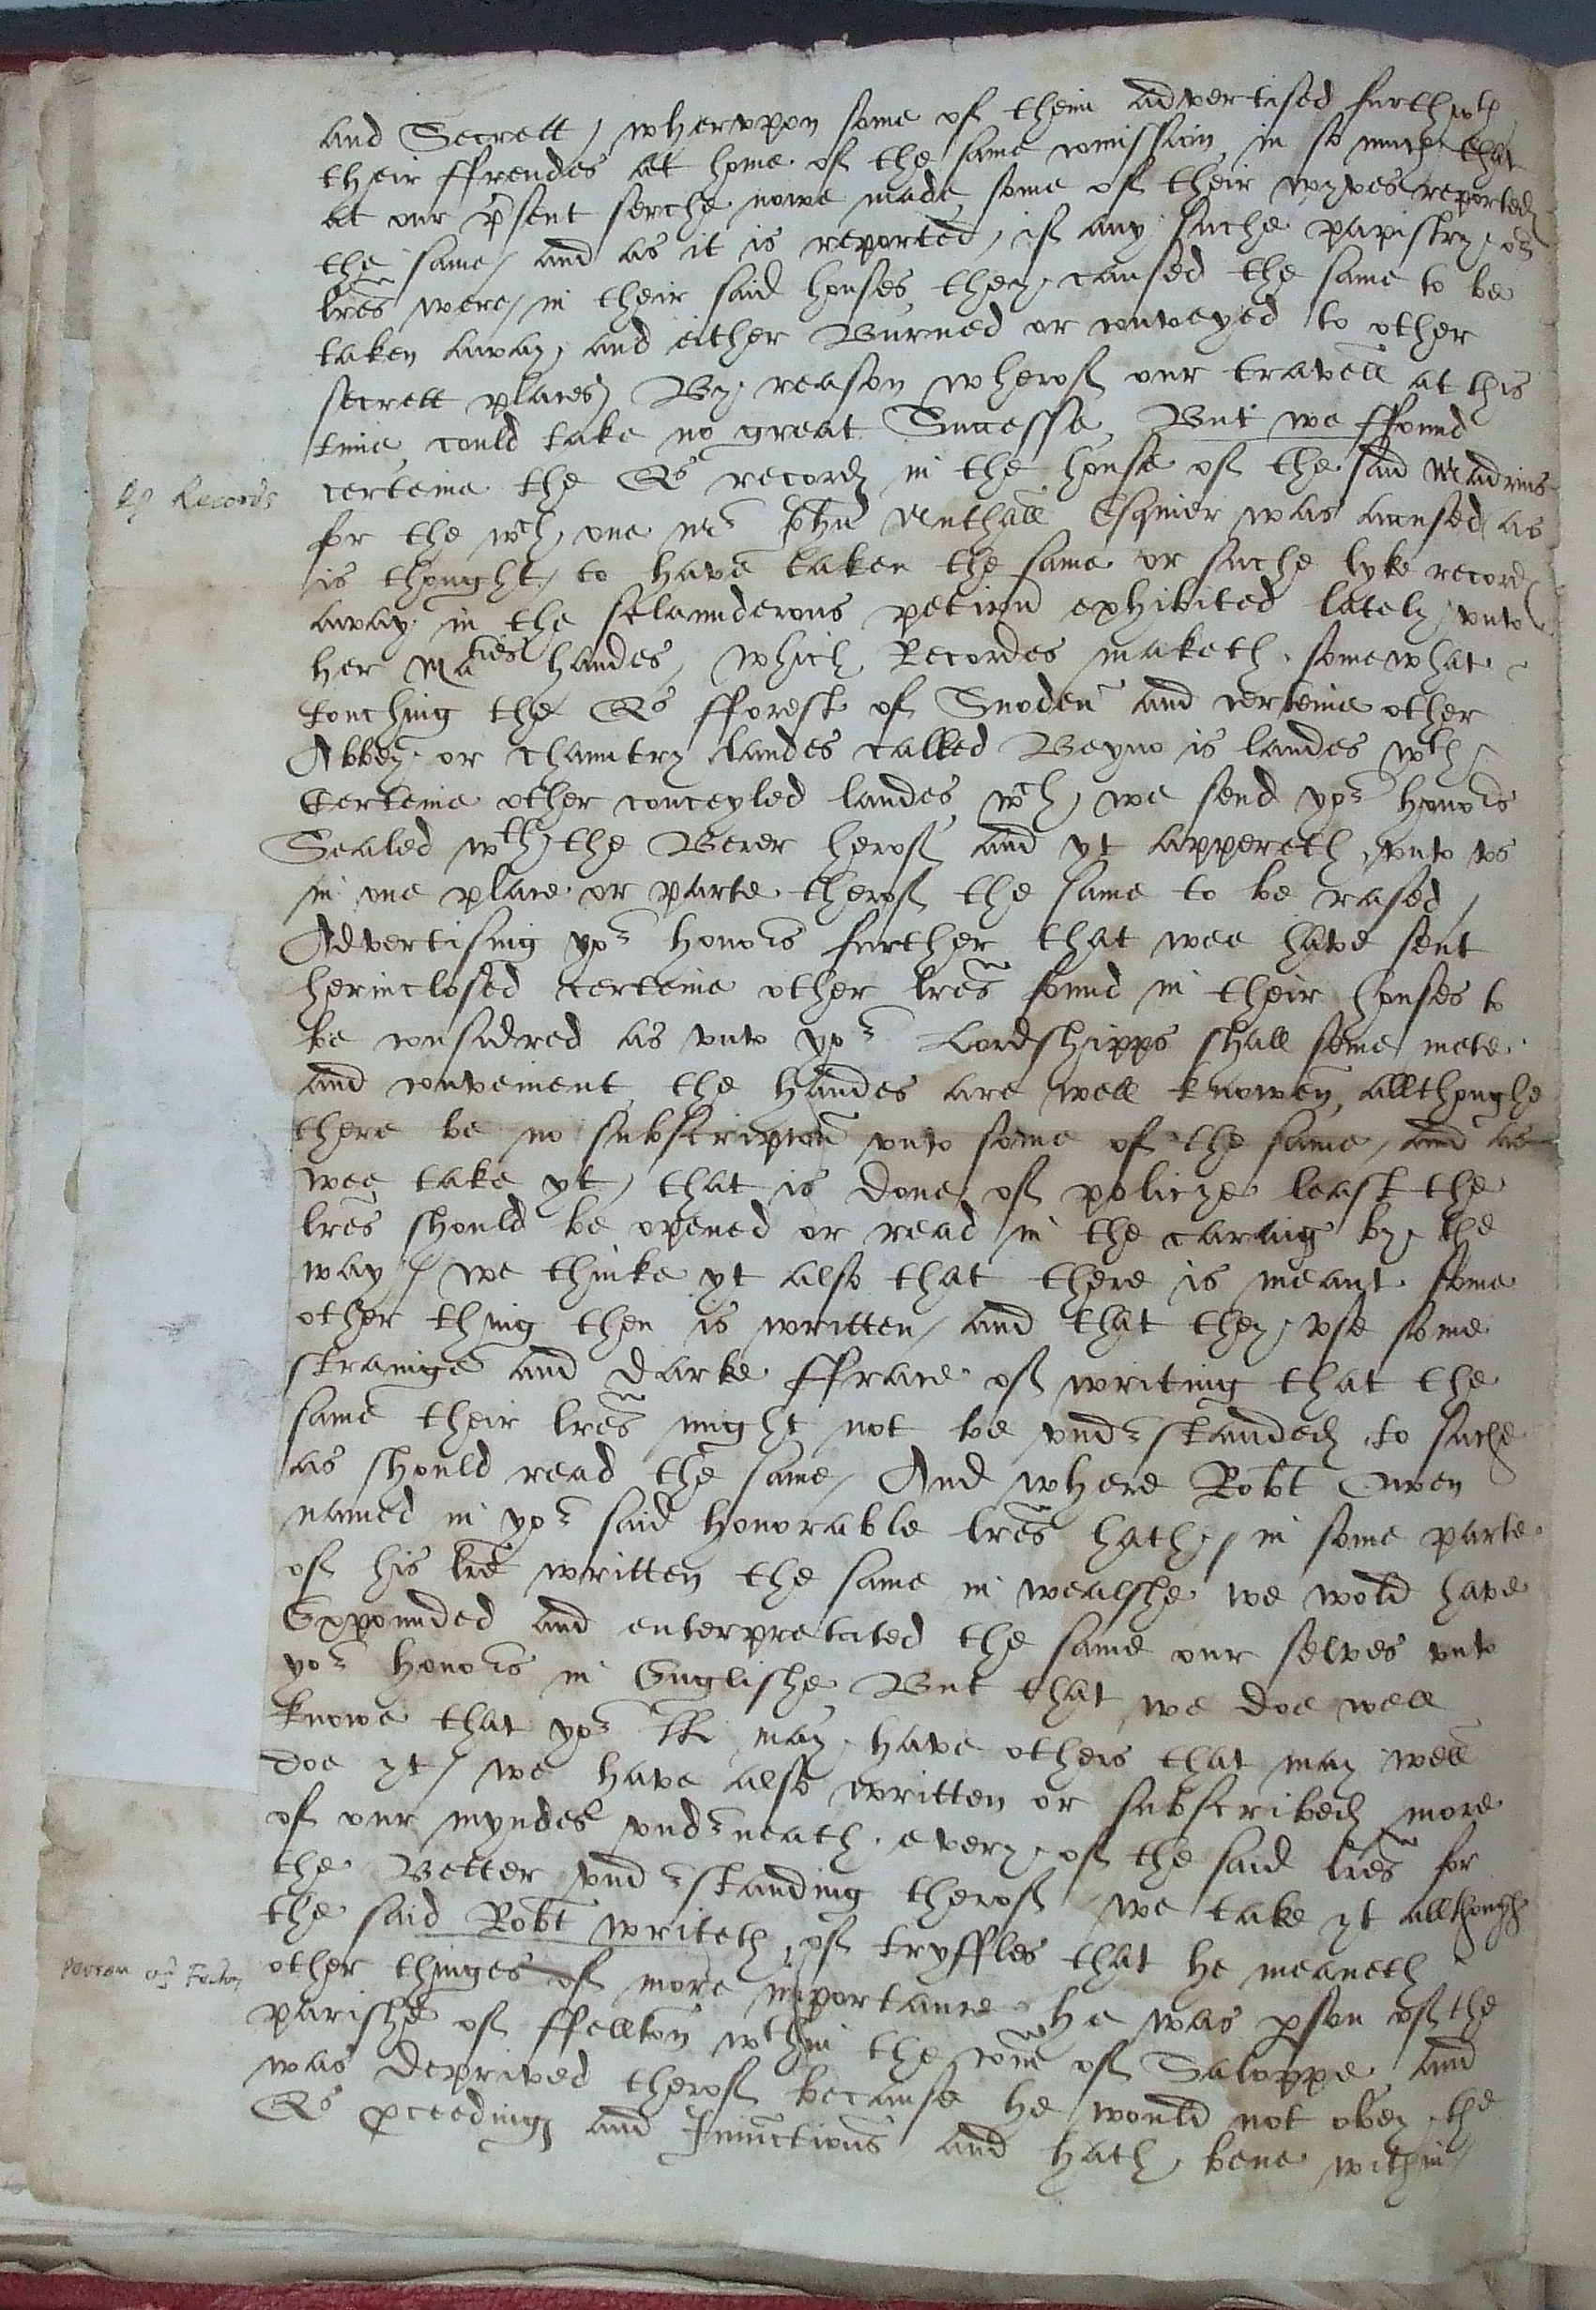 and Secrett / wheruppon some of theim advertised furthwth
their ffrendes at home of the same comission in so much that
at our p̱sent serche nowe made some of their wyves reported
the same / and as it is reported / if any suche papistry or
lr̃es were / in their said houses they caused the same to be
taken away and either Burned or conveyed to other
secrett places / By reason wherof our travell at this
time could take no great Successe, But we ffound
certeine the Qs records in the house of the said Madrins
for the wch one Mr John Unthall Esquier was accused as
is thought / to have taken the same or suche lyke records
away in the sclaunderous petic̃on exhibited lately unto
her Maties handes, which Recordes maketh somewhat
touching the Qs fforest of Snoden and certeine other
Abbey or chauntry landes called Beyno is landes wth
Certeine other conceyled landes wch we send yor honors
Sealed wth the Berer herof and yt appereth unto us
in one place or parte therof the same to be rased /
Advertising yor honors further that wee have sent
herinclosed certeine other lr̃es found in their houses to
be considred as unto yor Lordshipps shall seme mete
and convenient, the handes are well knowen, allthoughe
there be no subscripc̃on unto some of the same / and as
wee take yt / that is done of policye least the
lr̃es should be opened or read in the cariag by the
way / we thinke yt also that there is meant some
other thing then is written / and that they use some
strainge and darke ffrace of writing that the
same their lr̃es might not be undrstanded to suche
as should read the same / And where Robt Owen
named in yor said honorable lr̃es hath / in some parte
of his lr̃e written the same in wealshe we wold have
Expounded and enterpretated the same our selves unto
yor honors in Englishe, But that we doe well
knowe that yor LL may have others that may well
doe yt / we have also written or subscribed more
of our myndes undrneath every of the said lr̃es for
the Better undrstanding therof / we take yt allthough
the said Robt writeth of tryffles that he meaneth
other thinges of more importance he was p̱son of the
parishe of ffellton wthin the com̃ of Saloppe and
was deprived therof because he would not obey the
Qs p̱ceedings and Iniunctions and hath bene within
Records
person of Felton